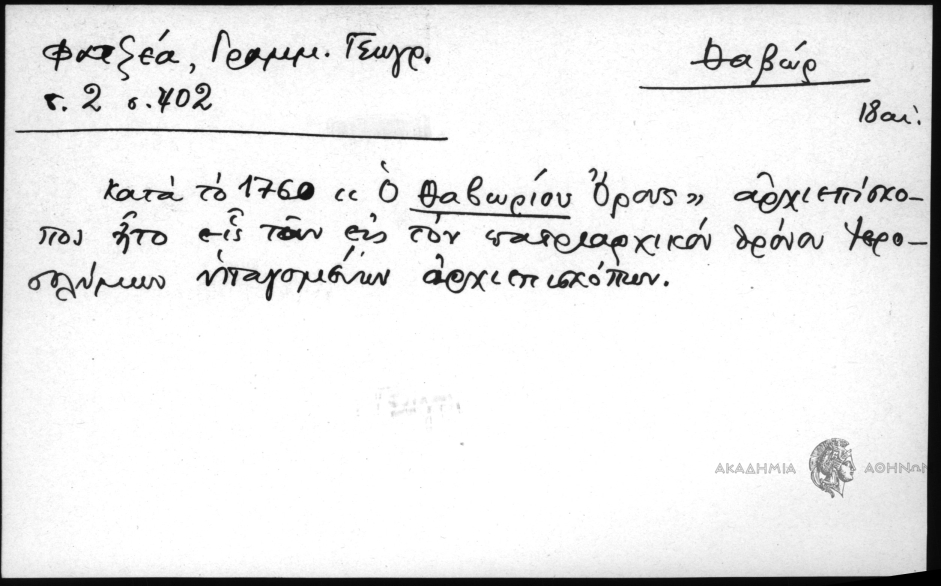 Φατζέα, Γραμμ. Γεωγρ.
τ. 2 σ. 402
Θαβώρ
18 αι.
Κατὰ τὸ 1760 « Ὁ Θαβωρίου Ὄρους» ἀρχιεπίσκο-
πος ἦτο εἷς τῶν εἰς τὸν πατριαρχικὸν θρόνον Ἱερο-
σολύμων ὑπαγομένων ἀρχιεπισκόπων.
ΑΚΑΔΗΜΙΑ ΑΘΗΝΩΝ